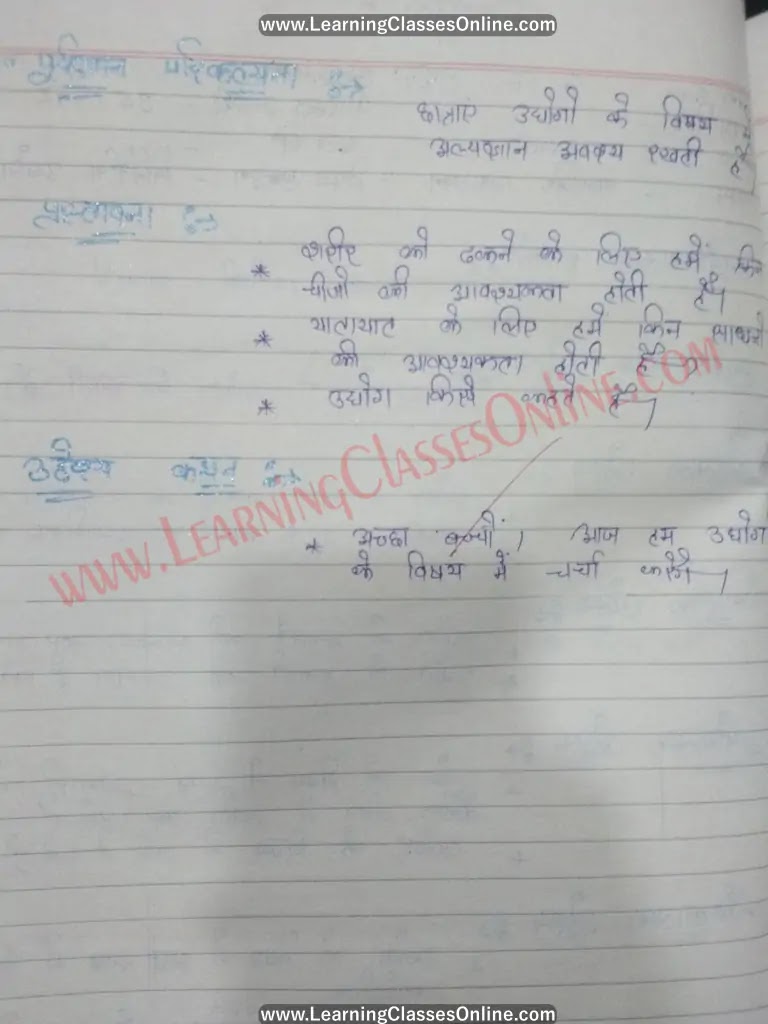 www.LearningClassesOnline.com
पूर्वज्ञान परिकल्पना :→
छात्राएं उद्योगो के विषय में
अल्पज्ञान अवश्य रखती है।
प्रस्तावना :→
* शरीर को ढकने के लिए हमें किन
चीजो की आवश्यकता होती है।
* यातायात के लिए हमे किन साधनो
की आवश्यकता होती है
* उद्योग किसे कहते है।
उद्देश्य कथन :→
* अच्छा बच्चों। आज हम उद्योग
के विषय में चर्चा करेंगे।
www.LearningClassesOnline.com
www.LearningClassesOnline.com